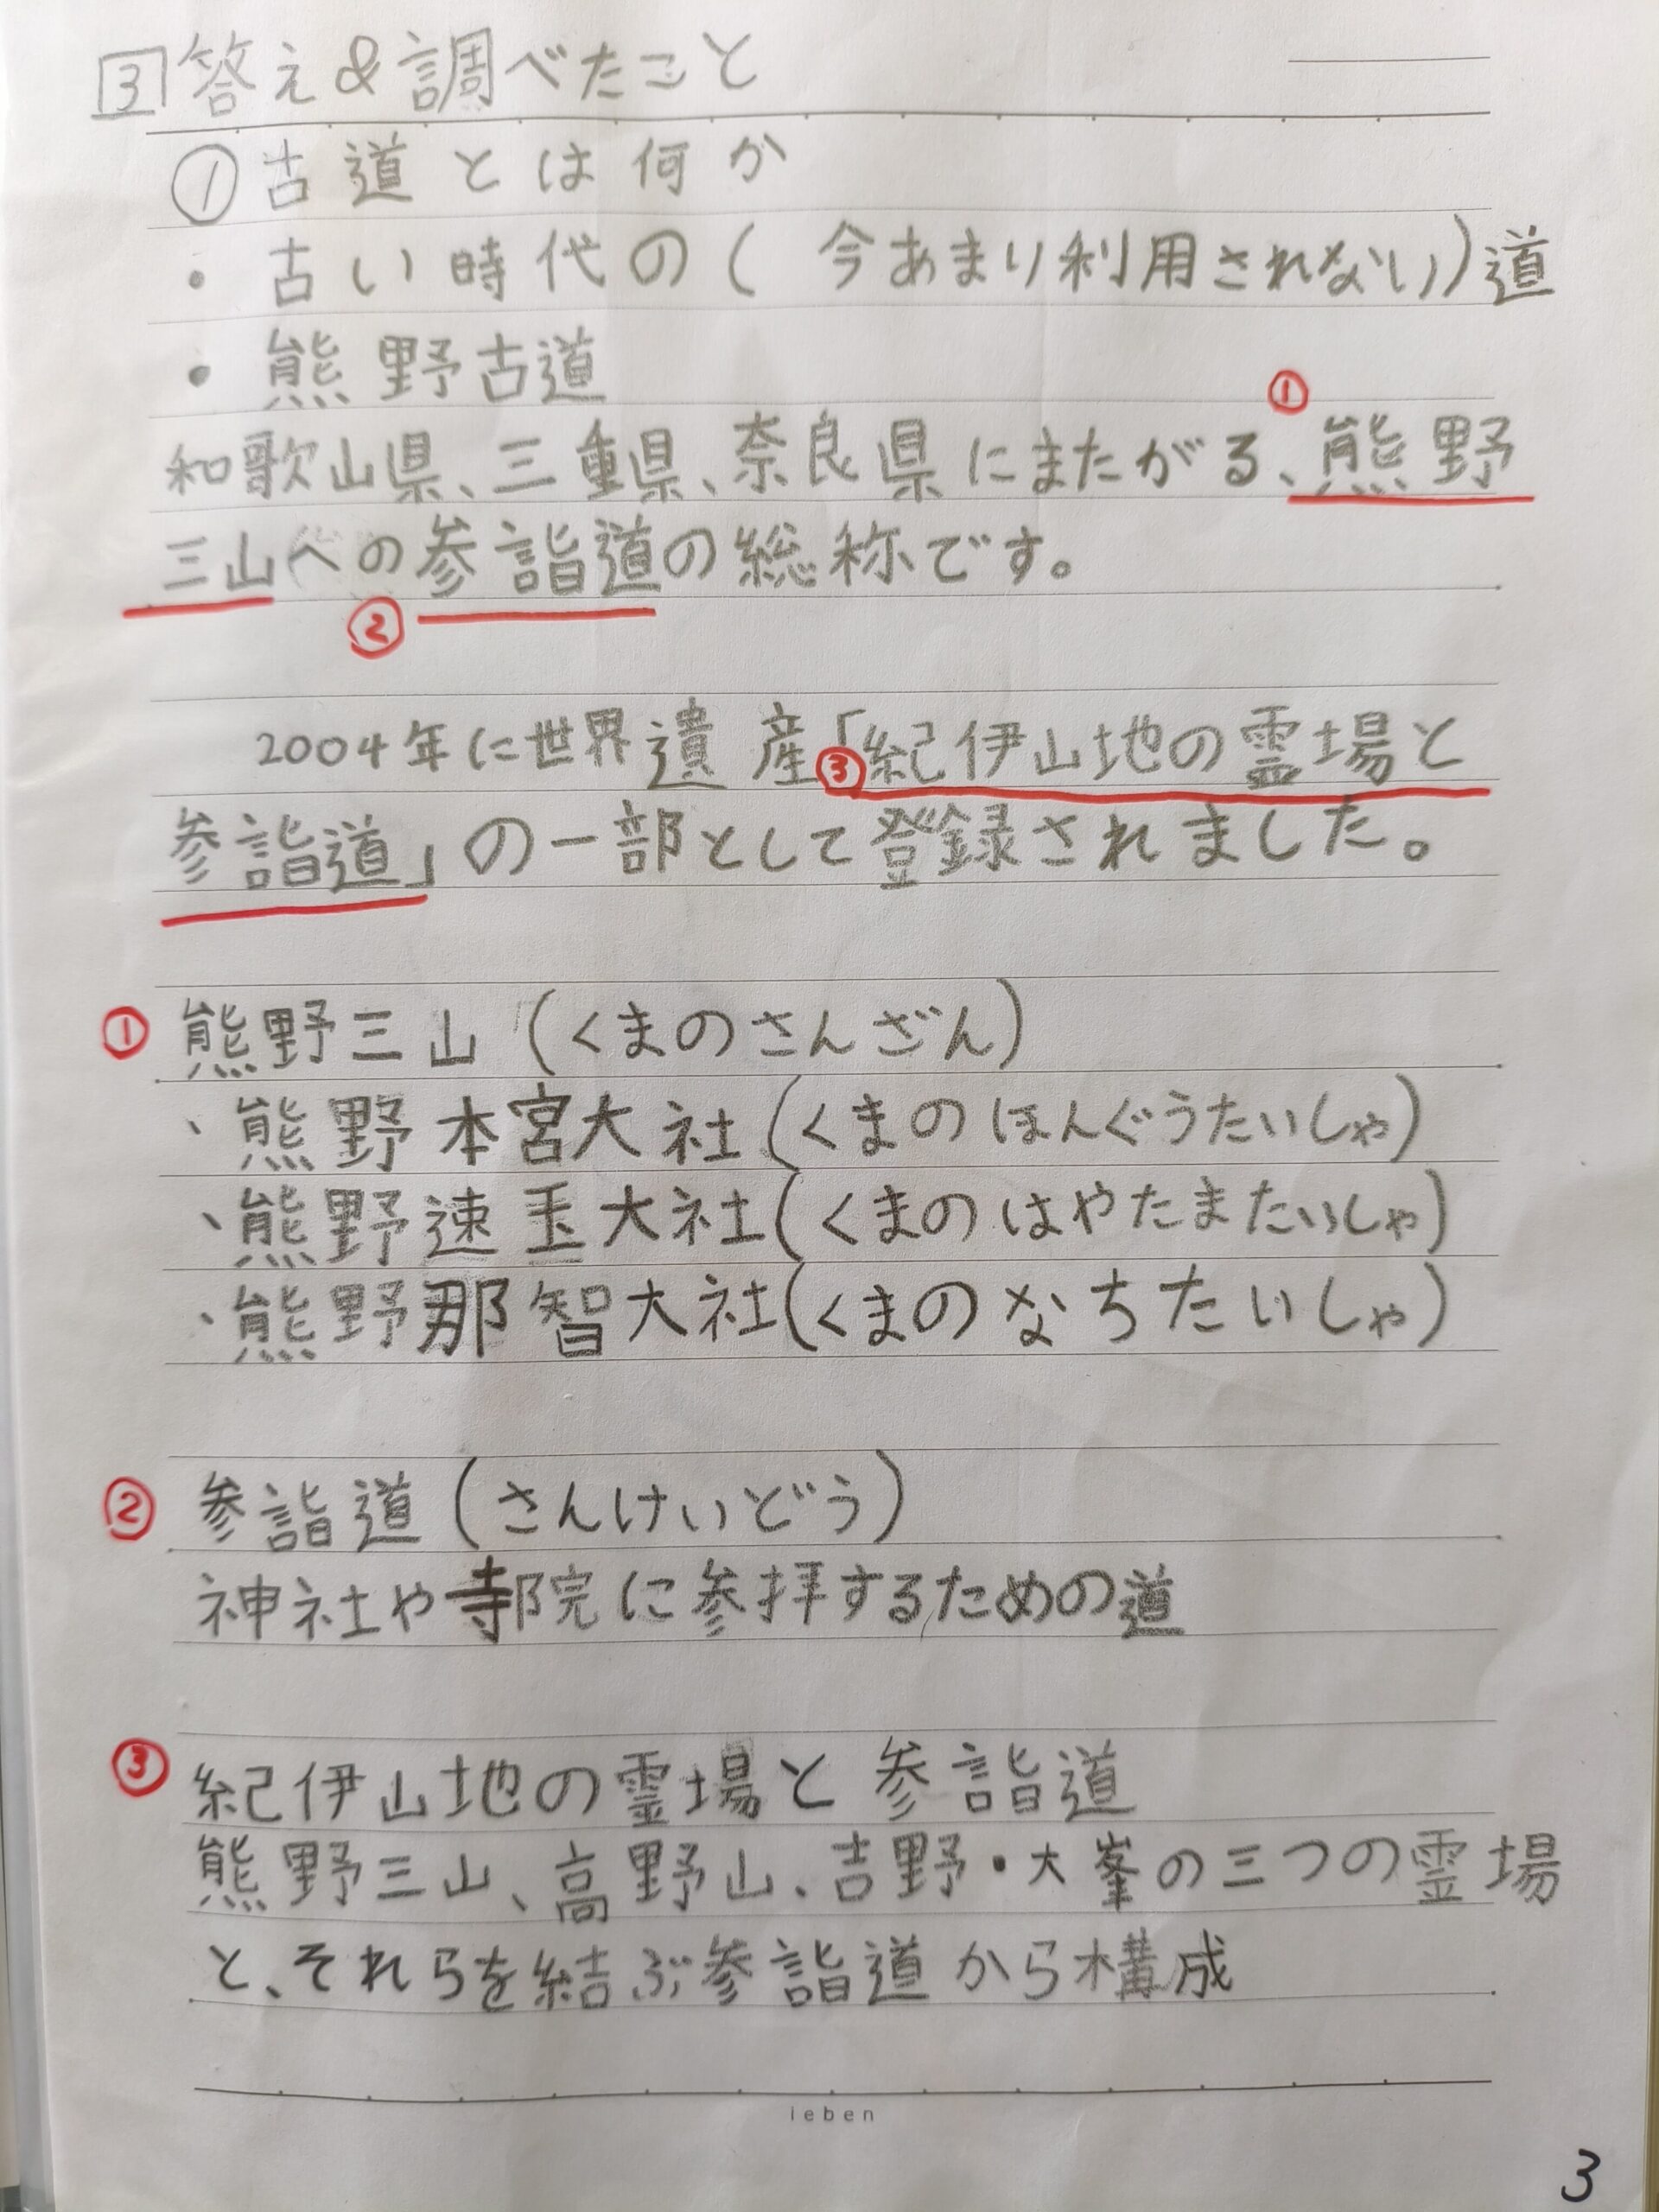 3 答え&調べたこと
① 古道とは何か
・古い時代の(今あまり利用されない)道
・熊野古道
①
和歌山県、三重県、奈良県にまたがる、熊野
三山への参詣道の総称です。
②
2004年に世界遺産③「紀伊山地の霊場と
参詣道」の一部として登録されました。
① 熊野三山(くまのさんざん)
、熊野本宮大社(くまのほんぐうたいしゃ)
、熊野速玉大社(くまのはやたまたいしゃ)
、熊野那智大社(くまのなちたいしゃ)
② 参詣道(さんけいどう)
神社や寺院に参拝するための道
③ 紀伊山地の霊場と参詣道
熊野三山、高野山、吉野・大峯の三つの霊場
と、それらを結ぶ参詣道から構成
leben
3